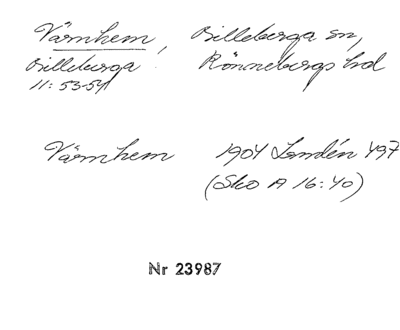 Värnhem, Billeberga sn,
Billeberga Rönnebergs hd
11:53-54
Värnhem 1904 Landén 497
(Sko A 16:40)
Nr 23987